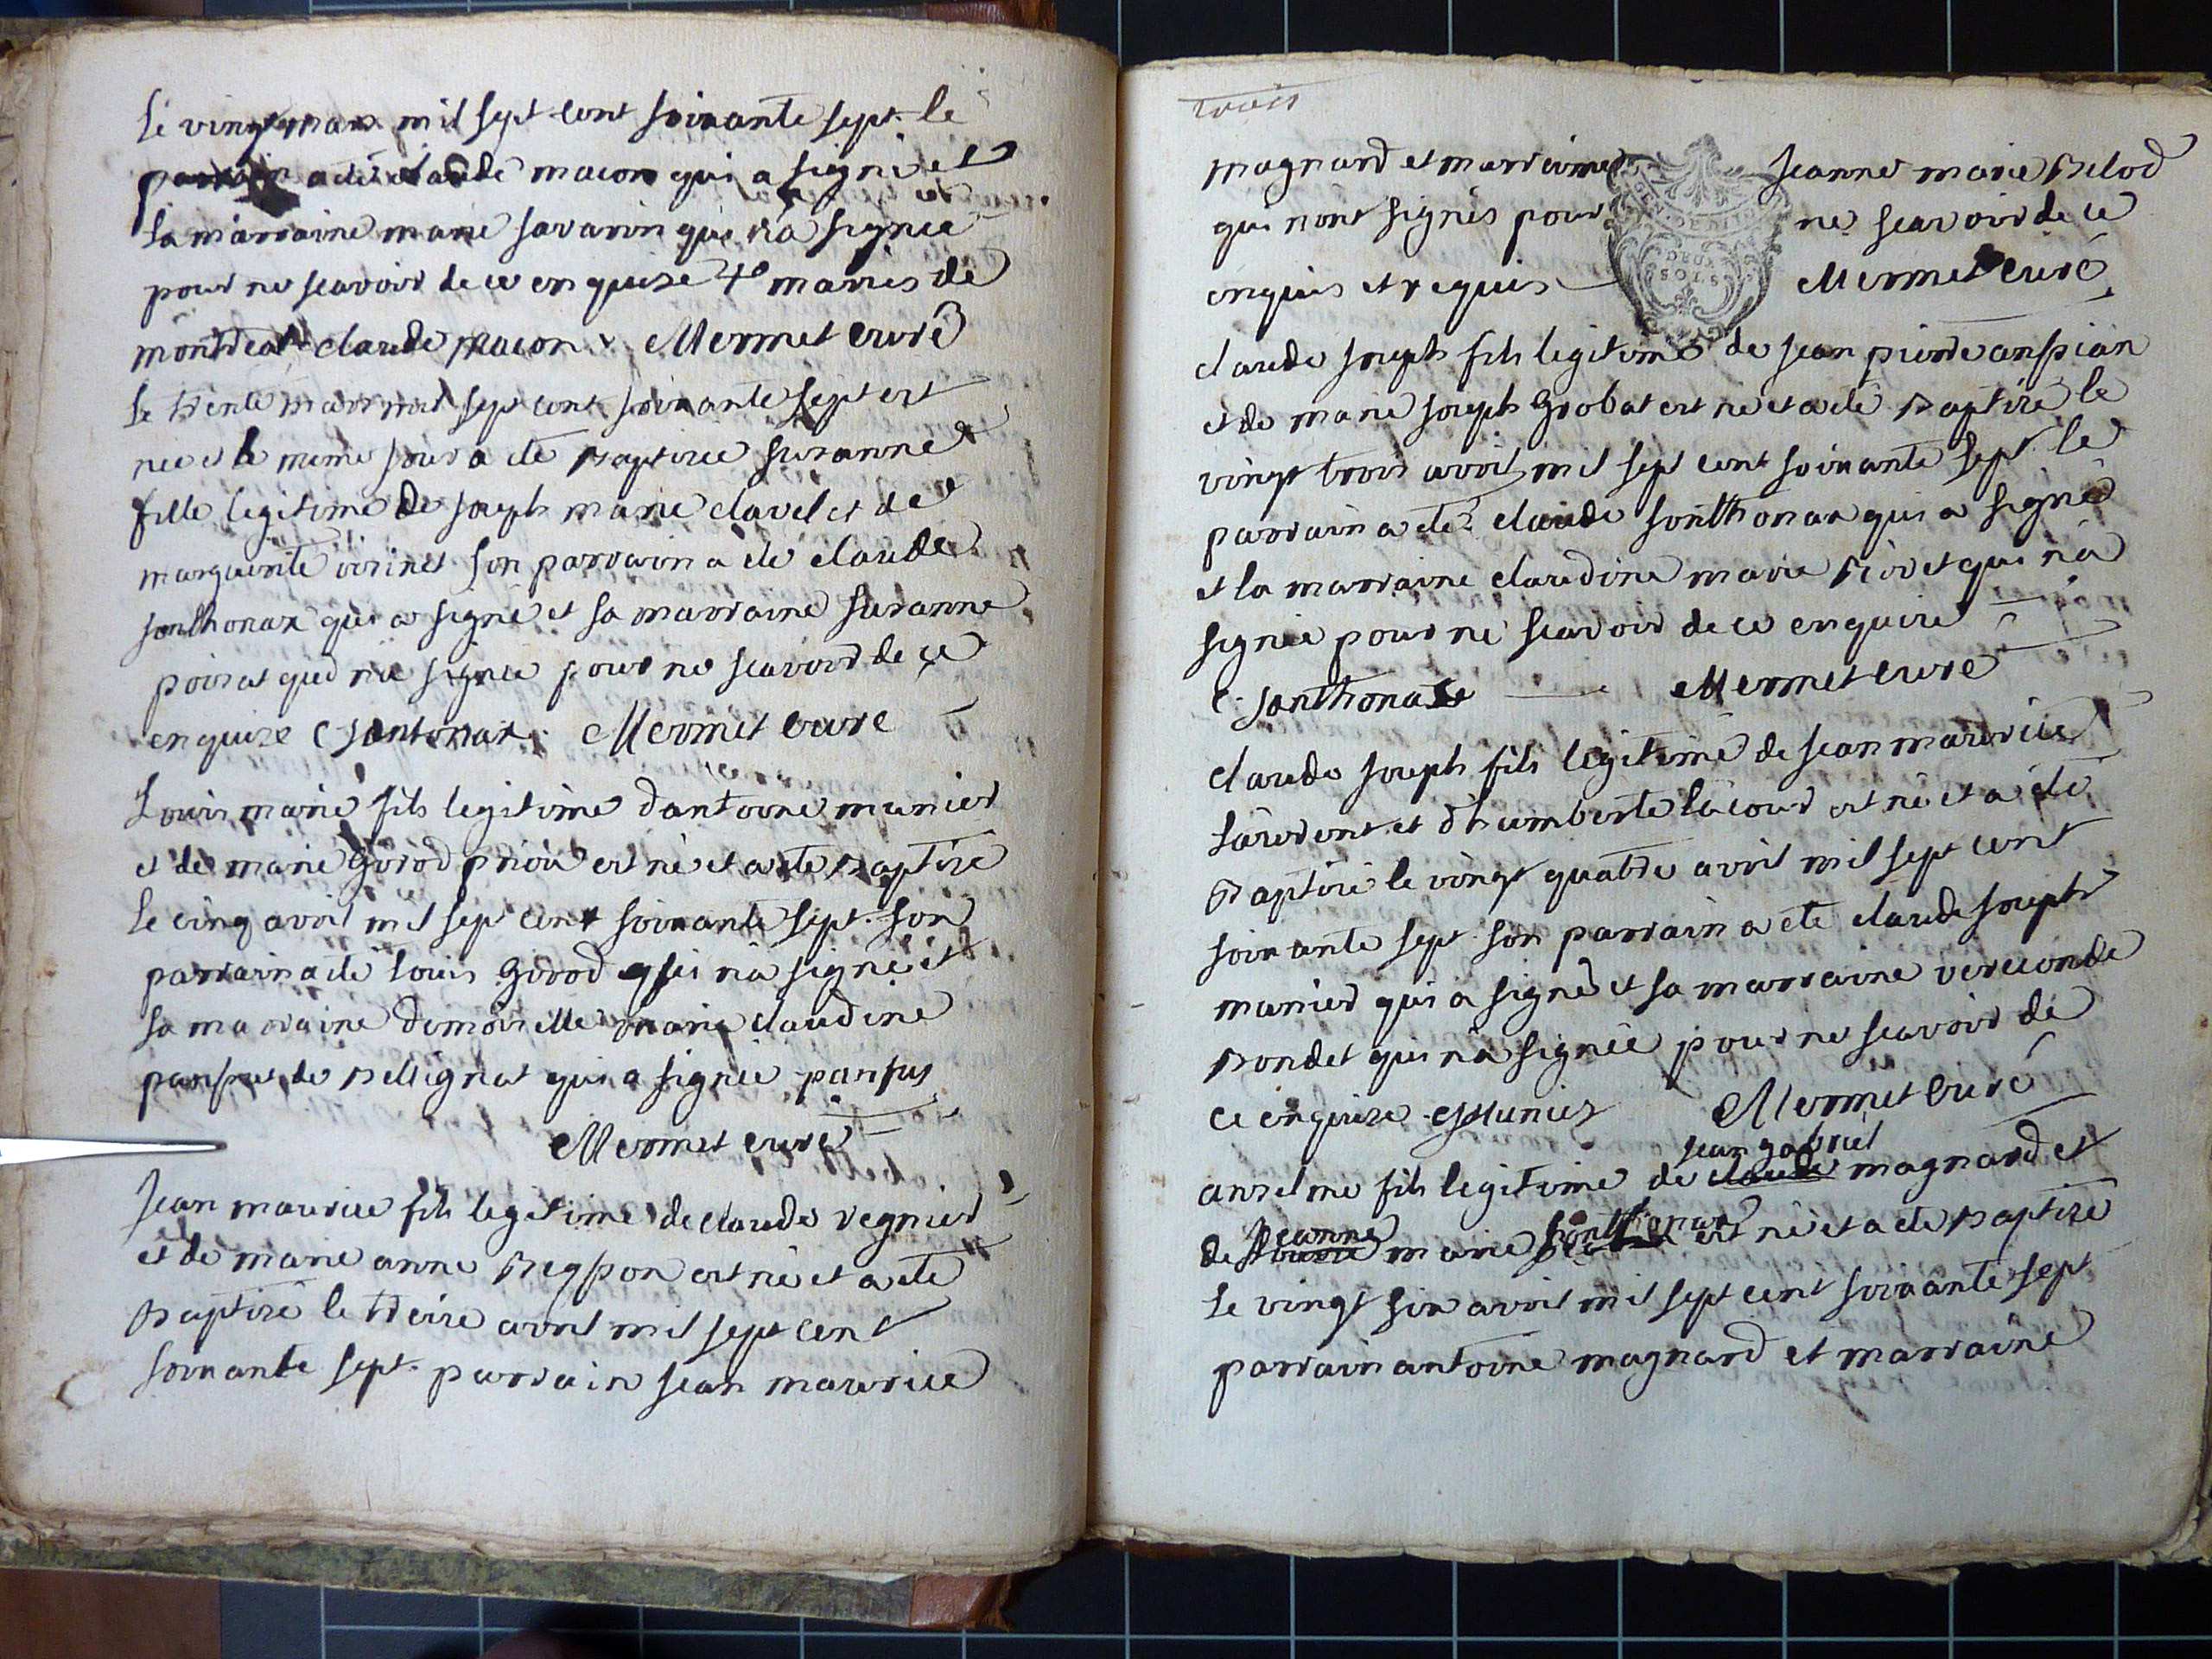 le vingt mars mil sept cent soixante sept. le
parrain a été claude macon qui a signé et
la marraine marie savarin qui n'a signée
pour ne scavoir de ce enquise mariés de
montreal claude macon Mermet curé
le trente mars mil sept cent soixante sept est
née et le meme jour a été baptisée suzanne
fille legitime de joseph marie clavel et de
marguerite son parrain a été claude
sonthonax qui a signé et sa marraine suzanne
poizat qui n'a signée pour ne scavoir de ce
enquise C sontonax. Mermet curé
Louis marie fils legitime d'antoine munier
et de marie girod est né et a été baptisé
le cinq avril mil sept cent soixante sept. son
parrain a été louis girod qui n'a signé et
sa marraine demoiselle marie claudine
panfus de bellignat qui a signée panfus
Mermet curé
Jean maurice fils legitime de claude regnier
et de marie anne est né et a été
baptisé le treize avril mil sept cent
soixante sept. parrain jean maurice
trois
magnard et marraine jeanne marie belod
qui n'ont signés pour ne scavoir de ce
GEN. DE
DEUX
SOLS
enquis et requis Mermet curé
claude joseph fils legitime de jean pierre anpian
et de marie joseph grobat est né et a été baptisé le
vingt trois avril mil sept cent soixante sept. le
parrain a été claude sonthonax qui a signé
et la marraine claudine marie qui n'a
signée pour ne scavoir de ce enquise
C. sonthonax Mermet curé
claude joseph fils legitime de jean maurice
laurent et d'humberte lacour est né et a été
baptisé le vingt quatre avril mil sept cent
soixante sept. son parrain a été claude joseph
munier qui a signé et sa marraine
bondet qui n'a signée pour ne scavoir de
ce enquise Munier Mermet curé
jean gabriel
anselme fils legitime de claude magnard et
jeanne
de marie sonthonax est né et a été baptisé
le vingt six avril mil sept cent soixante sept
parrain antoine magnard et marraine